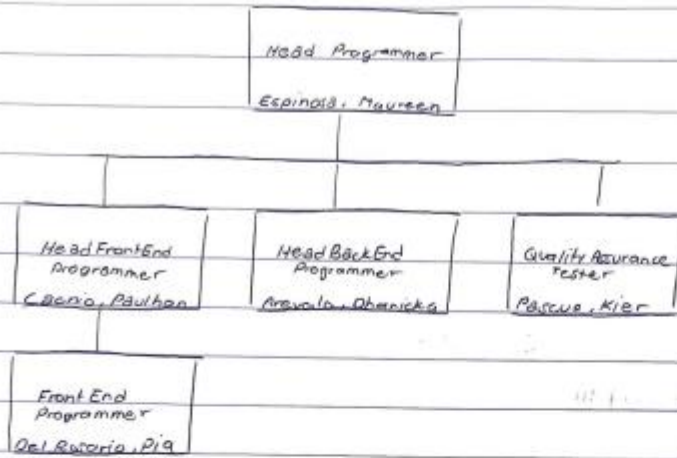 Head Programmer
Espinosa, Maureen
Head FrontEnd
Programmer
Paulhan
Head BackEnd
Programmer
Arevalo,
Quality Assurance
Tester
Pascua, Kier
Front End
Programmer
Del Rosario, Pia